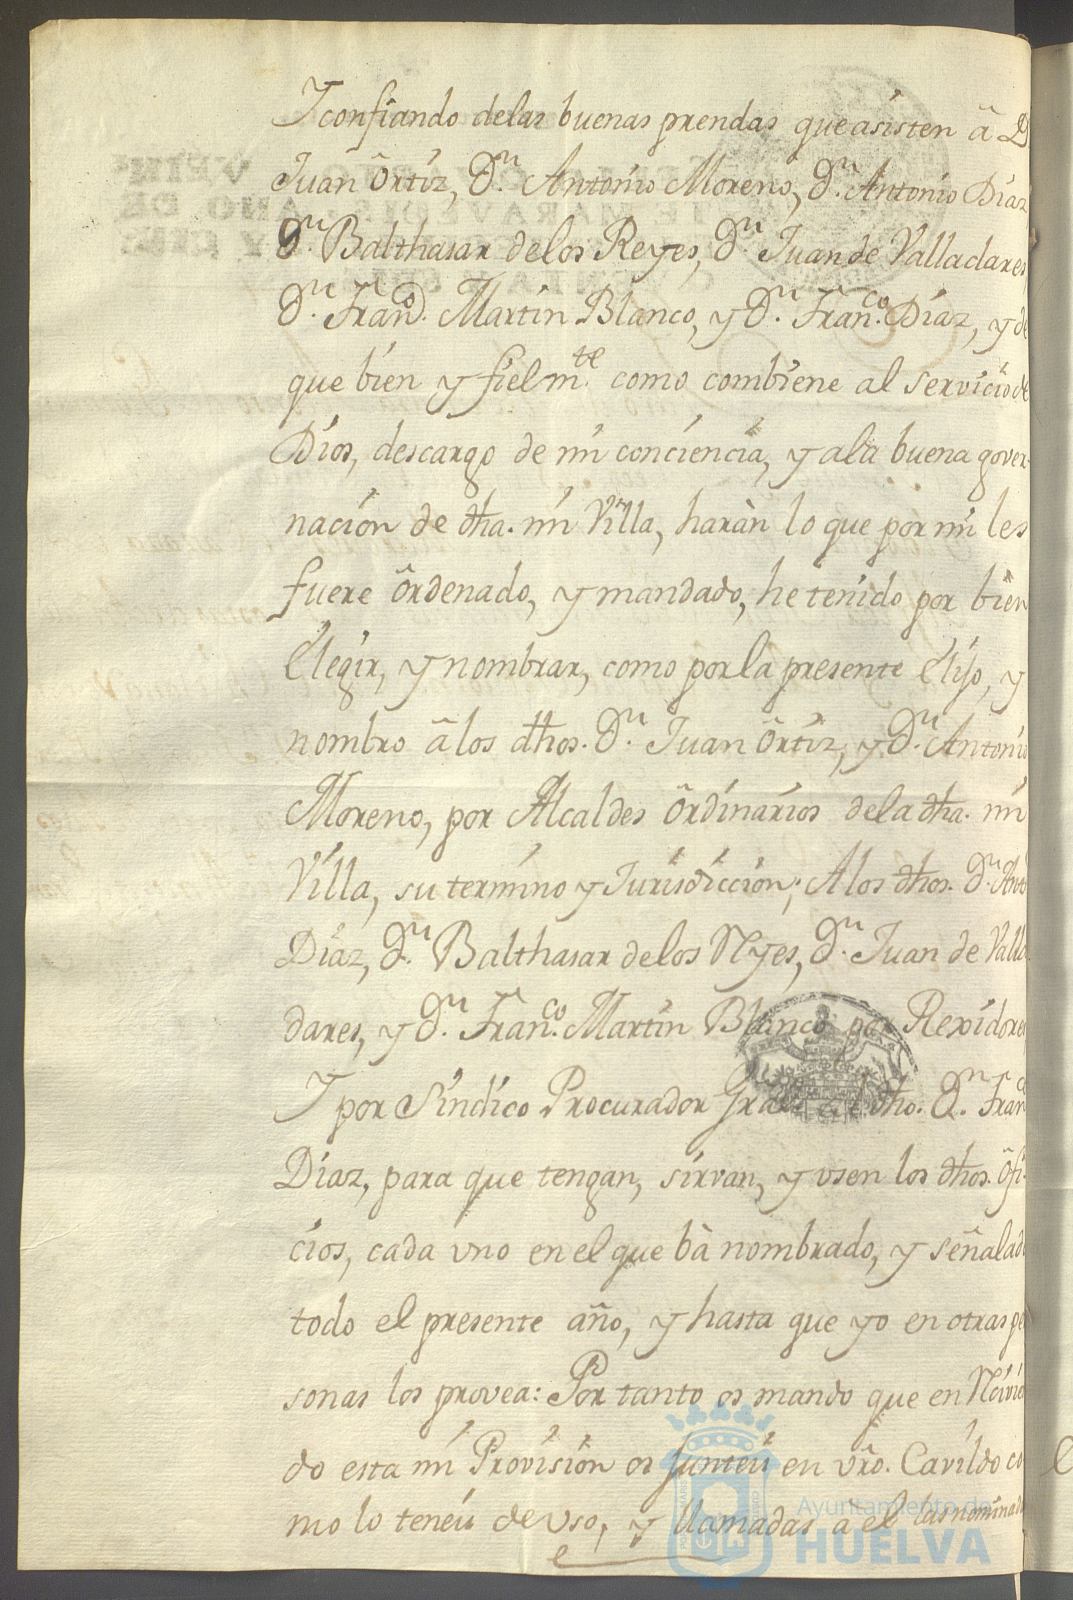 Y confiando delas buenas prendas que asisten â D.
Juan Ôrtiz, D.ⁿ Antonio Moreno, D.ⁿ Antonio Diaz
D.ⁿ Balthasar delos Reyes, D.ⁿ Juan de Valladares,
D.ⁿ Fran.co Martin Blanco, y D.ⁿ Fran.co Diaz, y de
que bien y fielm.te como combiene al servicio de
Dios, descargo de mi conciencia, y ala buena gover-
nacion de dha. mi Villa, haràn lo que por mi les
fuere ôrdenado, y mandado, he tenido por bien
Êlegir, y nombrar, como por la presente Êlijo, y
nombro â los dhos. D.ⁿ Juan Ôrtiz, y D.ⁿ Antonio
Moreno, por Alcaldes Ôrdinarios dela dha. mi
Villa, su termino y Jurisdiccion; A los dhos. D.ⁿ Antº
Diaz, D.ⁿ Balthasar delos Reyes, D.ⁿ Juan de Valla
dares, y D.ⁿ Fran.co Martin Blanco por Rexidores
Y por Sindico Procurador Gral al dho. D.ⁿ Fran.co
Diaz, para que tengan, sirvan, y usen los dhos. ôfi-
cios, cada uno en el que bà nombrado, y señalado
todo el presente año, y hasta que yo en otras per
sonas los provea: Por tanto os mando que en Recivien
do esta mi Provision os Junteis en vro. Cavildo co
mo lo teneis de uso, y llamadas a el las nominadas
Ayuntamiento de
HUELVA